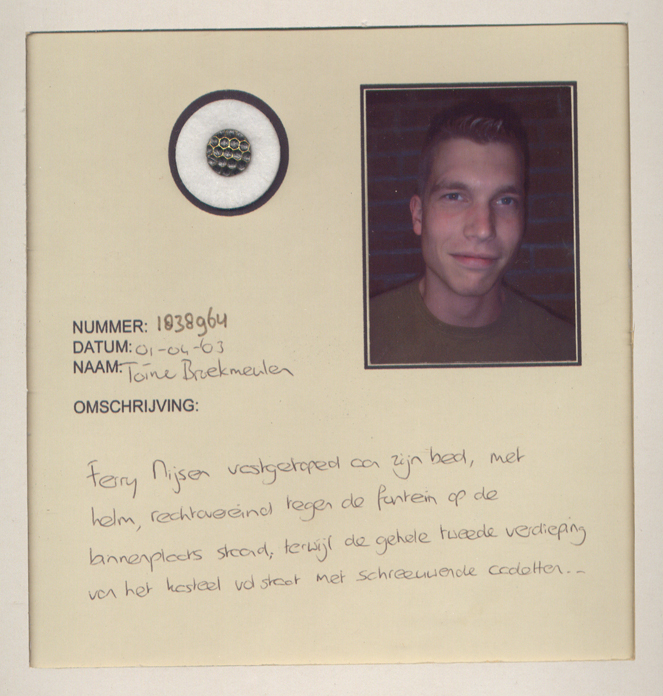 NUMMER: 1838964
DATUM: 01-04-03
NAAM: Toine Broekmeulen
OMSCHRIJVING:
Ferry Nijsen vastgetaped aan zijn bed, met
helm, rechtovereind tegen de fontein op de
binnenplaats staand, terwijl de gehele tweede verdieping
van het kasteel vol staat met schreeuwende cadetten...